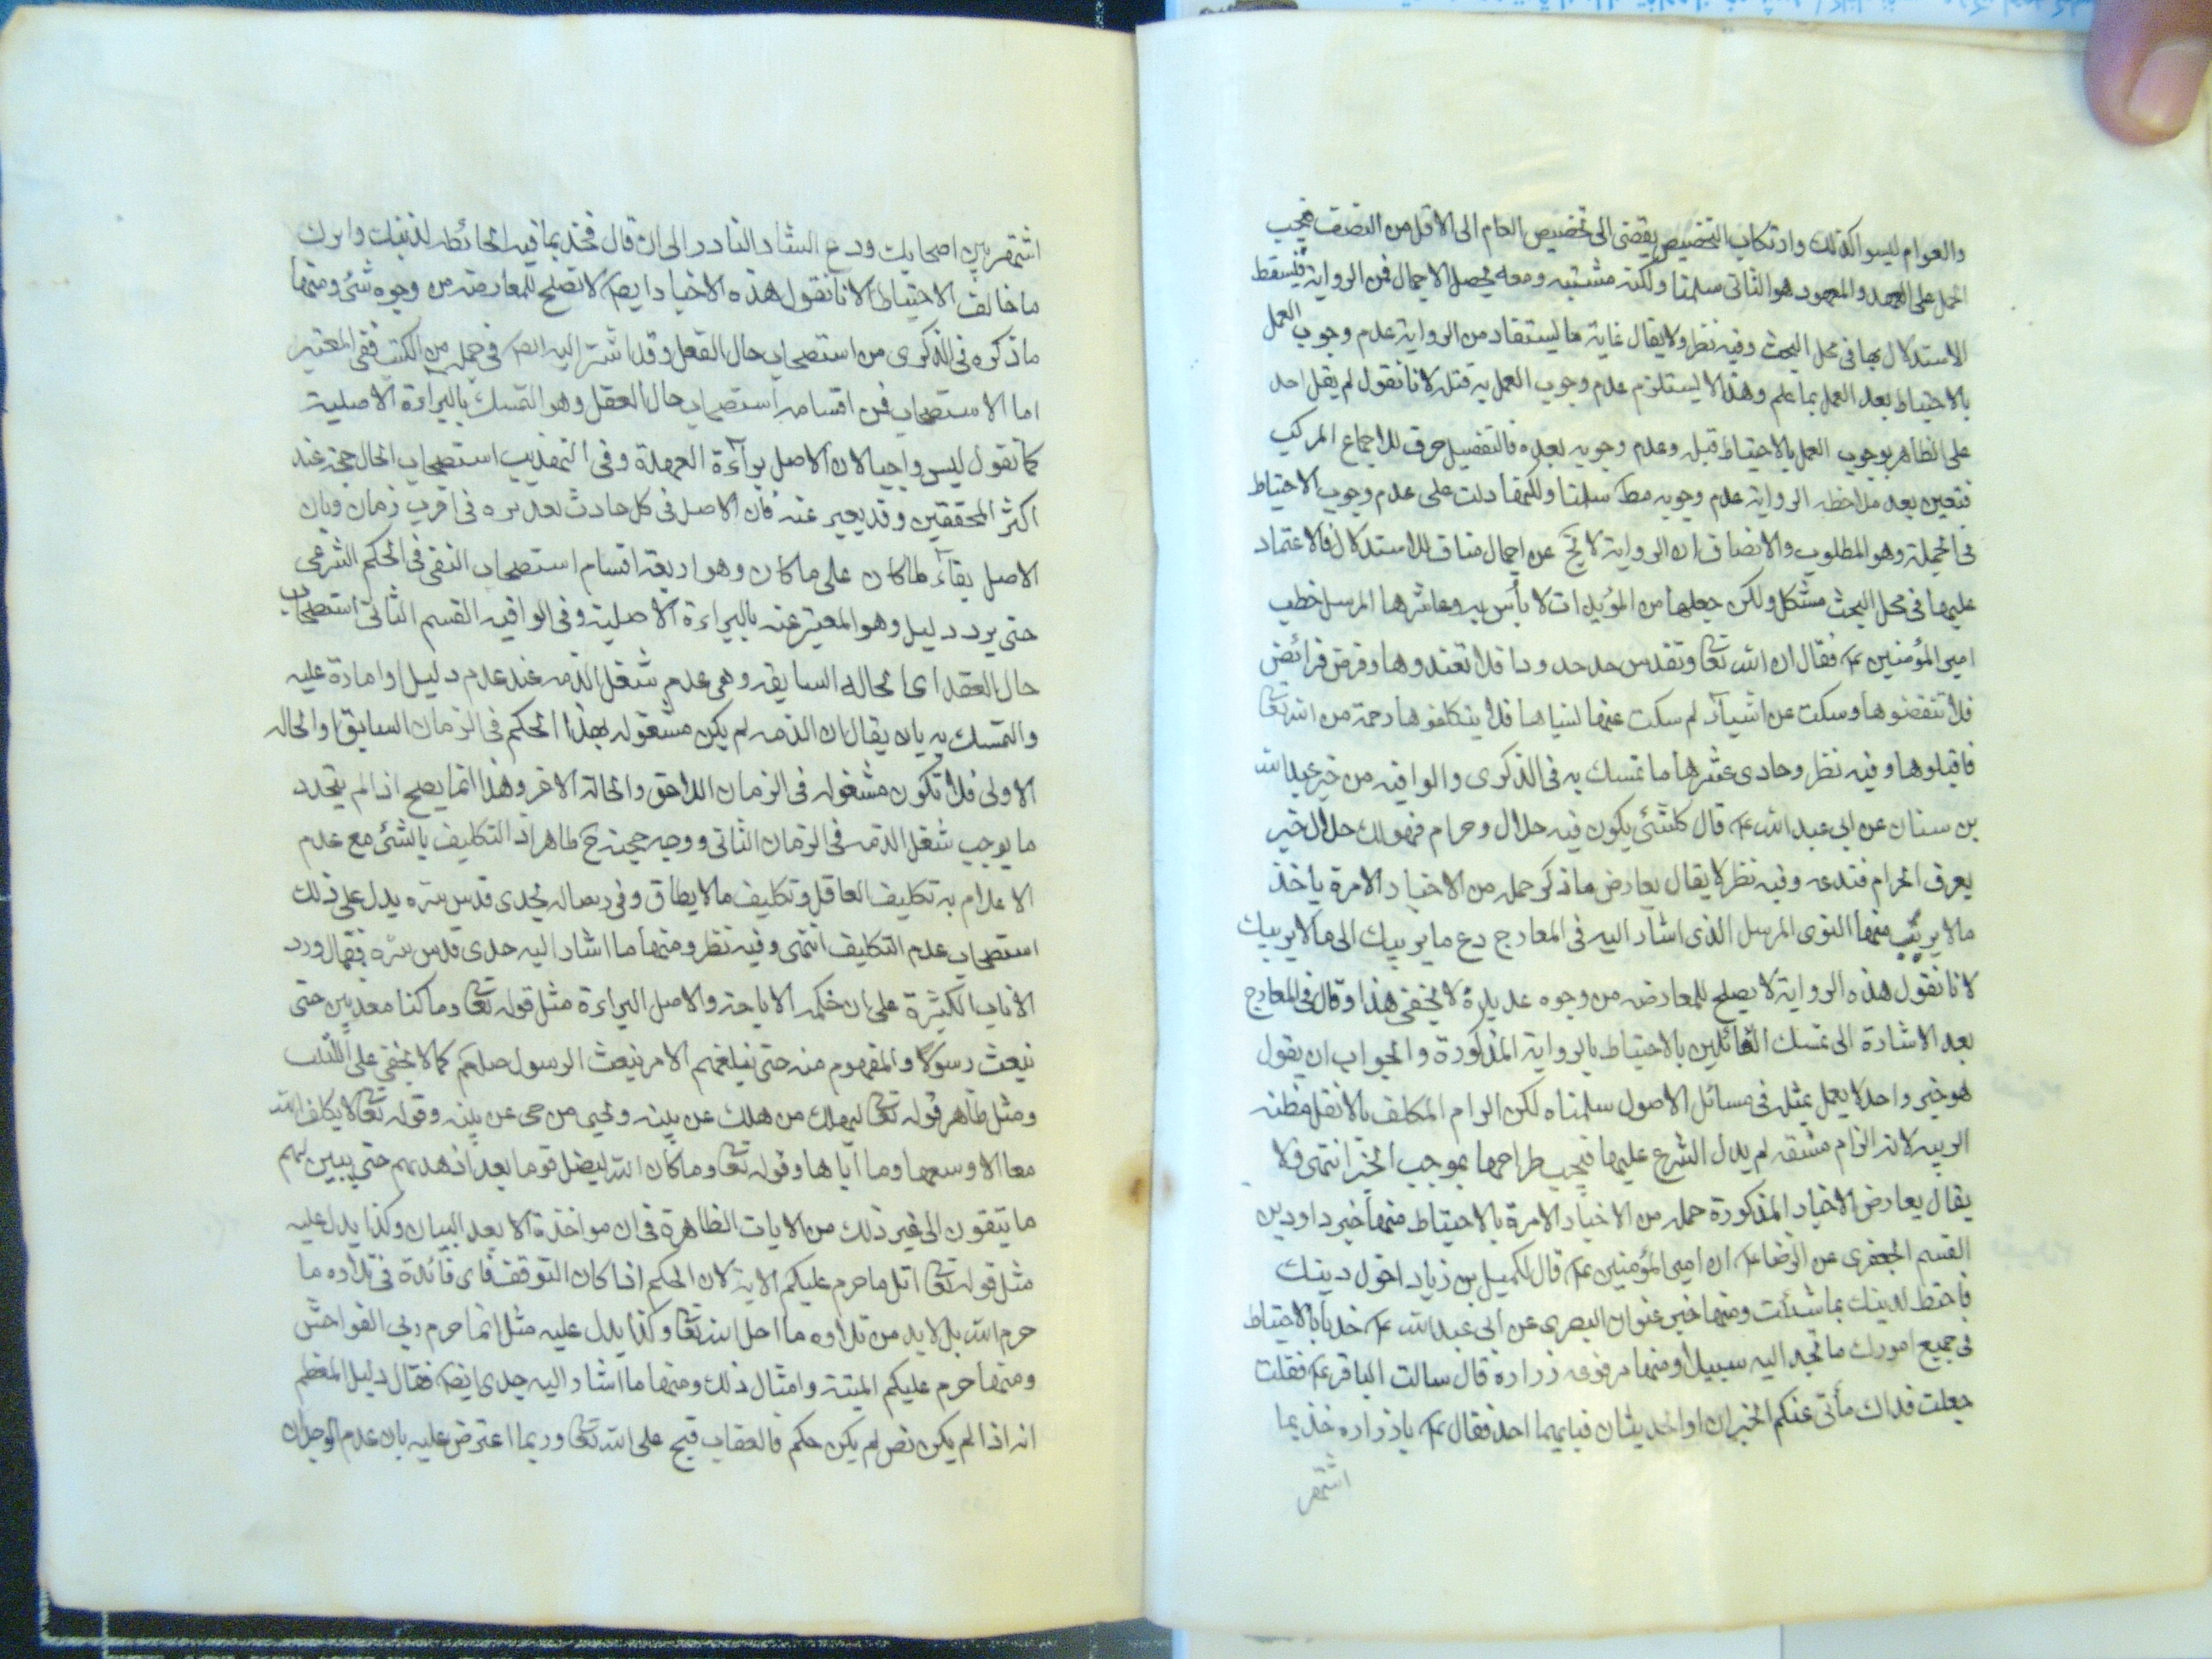 والعوام ليسوا كذلك وارتكاب التخصيص يقضى الى تخصيص العام الى الاقل من النصف فيجب
الحمل على العهد والمعهود هو الثانى سلمنا ولكنه مشتبه ومعه يحصل الاجمال فى الرواية فيسقط
الاستدلال بها فى محل البحث وفيه نظر ولا يقال غاية ما يستفاد من الرواية عدم وجوب العمل
بالاحتياط بعد العمل بما علم وهذا لا يستلزم عدم وجوب العمل به قبله لانا نقول لم يقل احد
على الظاهر بوجوب العمل بالاحتياط قبله وعدم وجوبه بعده فالتفصيل خرق للاجماع المركب
فتعين بعد ملاحظه الرواية عدم وجوبه مط سلمنا ولكنها دلت على عدم وجوب الاحتياط
فى الجملة وهو المطلوب والانصاف ان الرواية لا يخ عن اجمال مناف للاستدلال فالاعتماد
عليها فى محل البحث مشكل ولكن جعلها من المؤيدات لا بأس به وعاشرها المرسل خطب
امير المؤمنين ع فقال ان الله تعا وتقدس حد حدودا فلا تعتدوها وفرض فرائض
فلا تنقضوها وسكت عن اشياء لم سكت عنها نسيانا فلا يتكلفوها رحمة من الله تعا
فاقبلوها وفيه نظر وحادى عشرها ما تمسك به فى الذكرى والوافيه من خبر عبد الله
بن سنان عن ابى عبد الله ع قال كلشئ يكون فيه حلال وحرام فهو لك حلال حتى
يعرف الحرام فتدعه وفيه نظر لا يقال يعارض ما ذكر جمله من الاخبار الامرة باخذ
ما لا يريب منها النبوى المرسل الذى اشار اليه فى المعارج دع ما يريبك الى ما لا يريبك
لانا نقول هذه الرواية لا يصلح للمعارضه من وجوه عديدة لا يخفى هذا وقال فى المعارج
بعد الاشارة الى تمسك القائلين بالاحتياط بالرواية المذكورة والجواب ان يقول
هو خبر واحد لا يعمل بمثله فى مسائل الاصول سلمناه لكن الزام المكلف بالاثقل مظنه
الريبه لانه الزام مشقه لم يدل الشرع عليها فيجب طراحها بموجب الخبر انتهى ولا
يقال يعارض الاخبار المذكورة جمله من الاخبار الامرة بالاحتياط منها خبر داود بن
القسم الجعفرى عن الرضا ع ان امير المؤمنين ع قال لكميل بن زياد اخوك دينك
فاحتط لدينك بما شئت ومنها خبر عنوان البصرى عن ابى عبد الله ع خذ بالاحتياط
فى جميع امورك ما تجد اليه سبيلا ومنها مرفوعه زراره قال سالت الباقر ع فقلت
جعلت فداك يأتى عنكم الخبران او الحديثان فبايهما اخذ فقال ع يا زراره خذ بما
اشتهر
اشتهر بين اصحابك ودع الشاذ النادر الى ان قال فخذ بما فيه الحائطه لدينك واترك
ما خالف الاحتياط لانا نقول هذه الاخبار ايض لا تصلح للمعارضه من وجوه شتى ومنها
ما ذكره فى الذكرى من استصحاب حال العقل وقد اشير اليه ايض فى جمله من الكتب ففى المعتبر
اما الاستصحاب فمن اقسامه استصحاب حال العقل وهو التمسك بالبراءة الاصلية
كما نقول ليس واجبا لان الاصل براءة العهدة وفى التهذيب استصحاب الحال حجة عند
اكثر المحققين وقد يعبر عنه فان الاصل فى كل حادث تقديره فى اقرب زمان وبان
الاصل بقاء ما كان على ما كان وهو اربعة اقسام استصحاب النفى فى الحكم الشرعى
حتى يرد دليل وهو المعبر عنه بالبراءة الاصلية وفى الوافيه القسم الثانى استصحاب
حال العقل اى الحاله السابقه وهى عدم شغل الذمه عند عدم دليل او امارة عليه
والتمسك به بان يقال ان الذمه لم يكن مشغوله بهذا الحكم فى الزمان السابق او الحاله
الاولى فلا تكون مشغوله فى الزمان اللاحق والحالة الاخرى وهذا انما يصلح اذا لم يتجدد
ما يوجب شغل الذمه فى الزمان الثانى ووجه حجيته ح ظاهر اذ التكليف بالشئ مع عدم
الاعلام به تكليف الغافل وتكليف ما لا يطاق وفى رساله لجدى قدس سره يدل على ذلك
استصحاب عدم التكليف انتهى وفيه نظر ومنها ما اشار اليه جدى قدس سره فقال ورد
الايات الكثيرة على ان حكمه الاباحة والاصل البراءة مثل قوله تعا وما كنا معذبين حتى
نبعث رسولا والمفهوم منه حتى نبلغهم الامر نبعث الرسول صلعم كما لا يخفى على
ومثل ظاهر قوله تعا ليهلك من هلك عن بينه ويحيى من حى عن بينه وقوله تعا لا يكلف الله
نفسا الا وسعها وما اتاها وقوله تعا وما كان الله ليضل قوما بعد اذ هديهم حتى يبين لهم
ما يتقون الى غير ذلك من الايات الظاهرة فى ان مواخذة الا بعد البيان وكذا يدل عليه
مثل قوله تعا اتل ما حرم عليكم الاية لان الحكم اذا كان التوقف فاى فائدة فى تلاوه ما
حرم الله بل لا بد من تلاوه ما احل الله تعا وكذا يدل عليه مثل انما حرم ربى الفواحش
ومنها حرم عليكم الميتة وامثال ذلك ومنها ما اشار اليه جدى ايض فقال دليل المعظم
انه اذا لم يكن نص لم يكن حكم فالعقاب قبيح على الله تعا وربما اعترض عليه بان عدم الوجدان